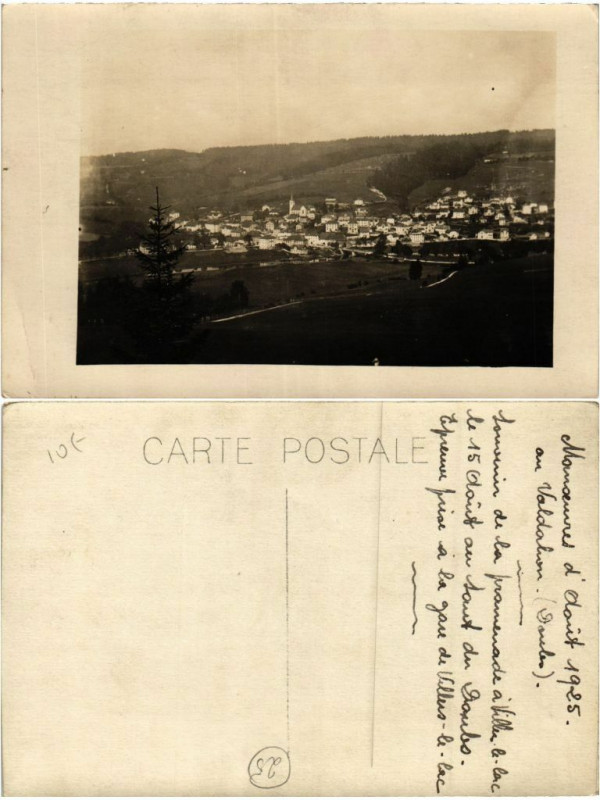 10€
CARTE POSTALE
Manœuvres d'Août 1925.
au Valdahon. (Doubs).
Souvenir de la promenade à Villers-le-lac
le 15 Août au Saut du Doubs.
Epreuve prise à la gare de Villers-le-lac
25